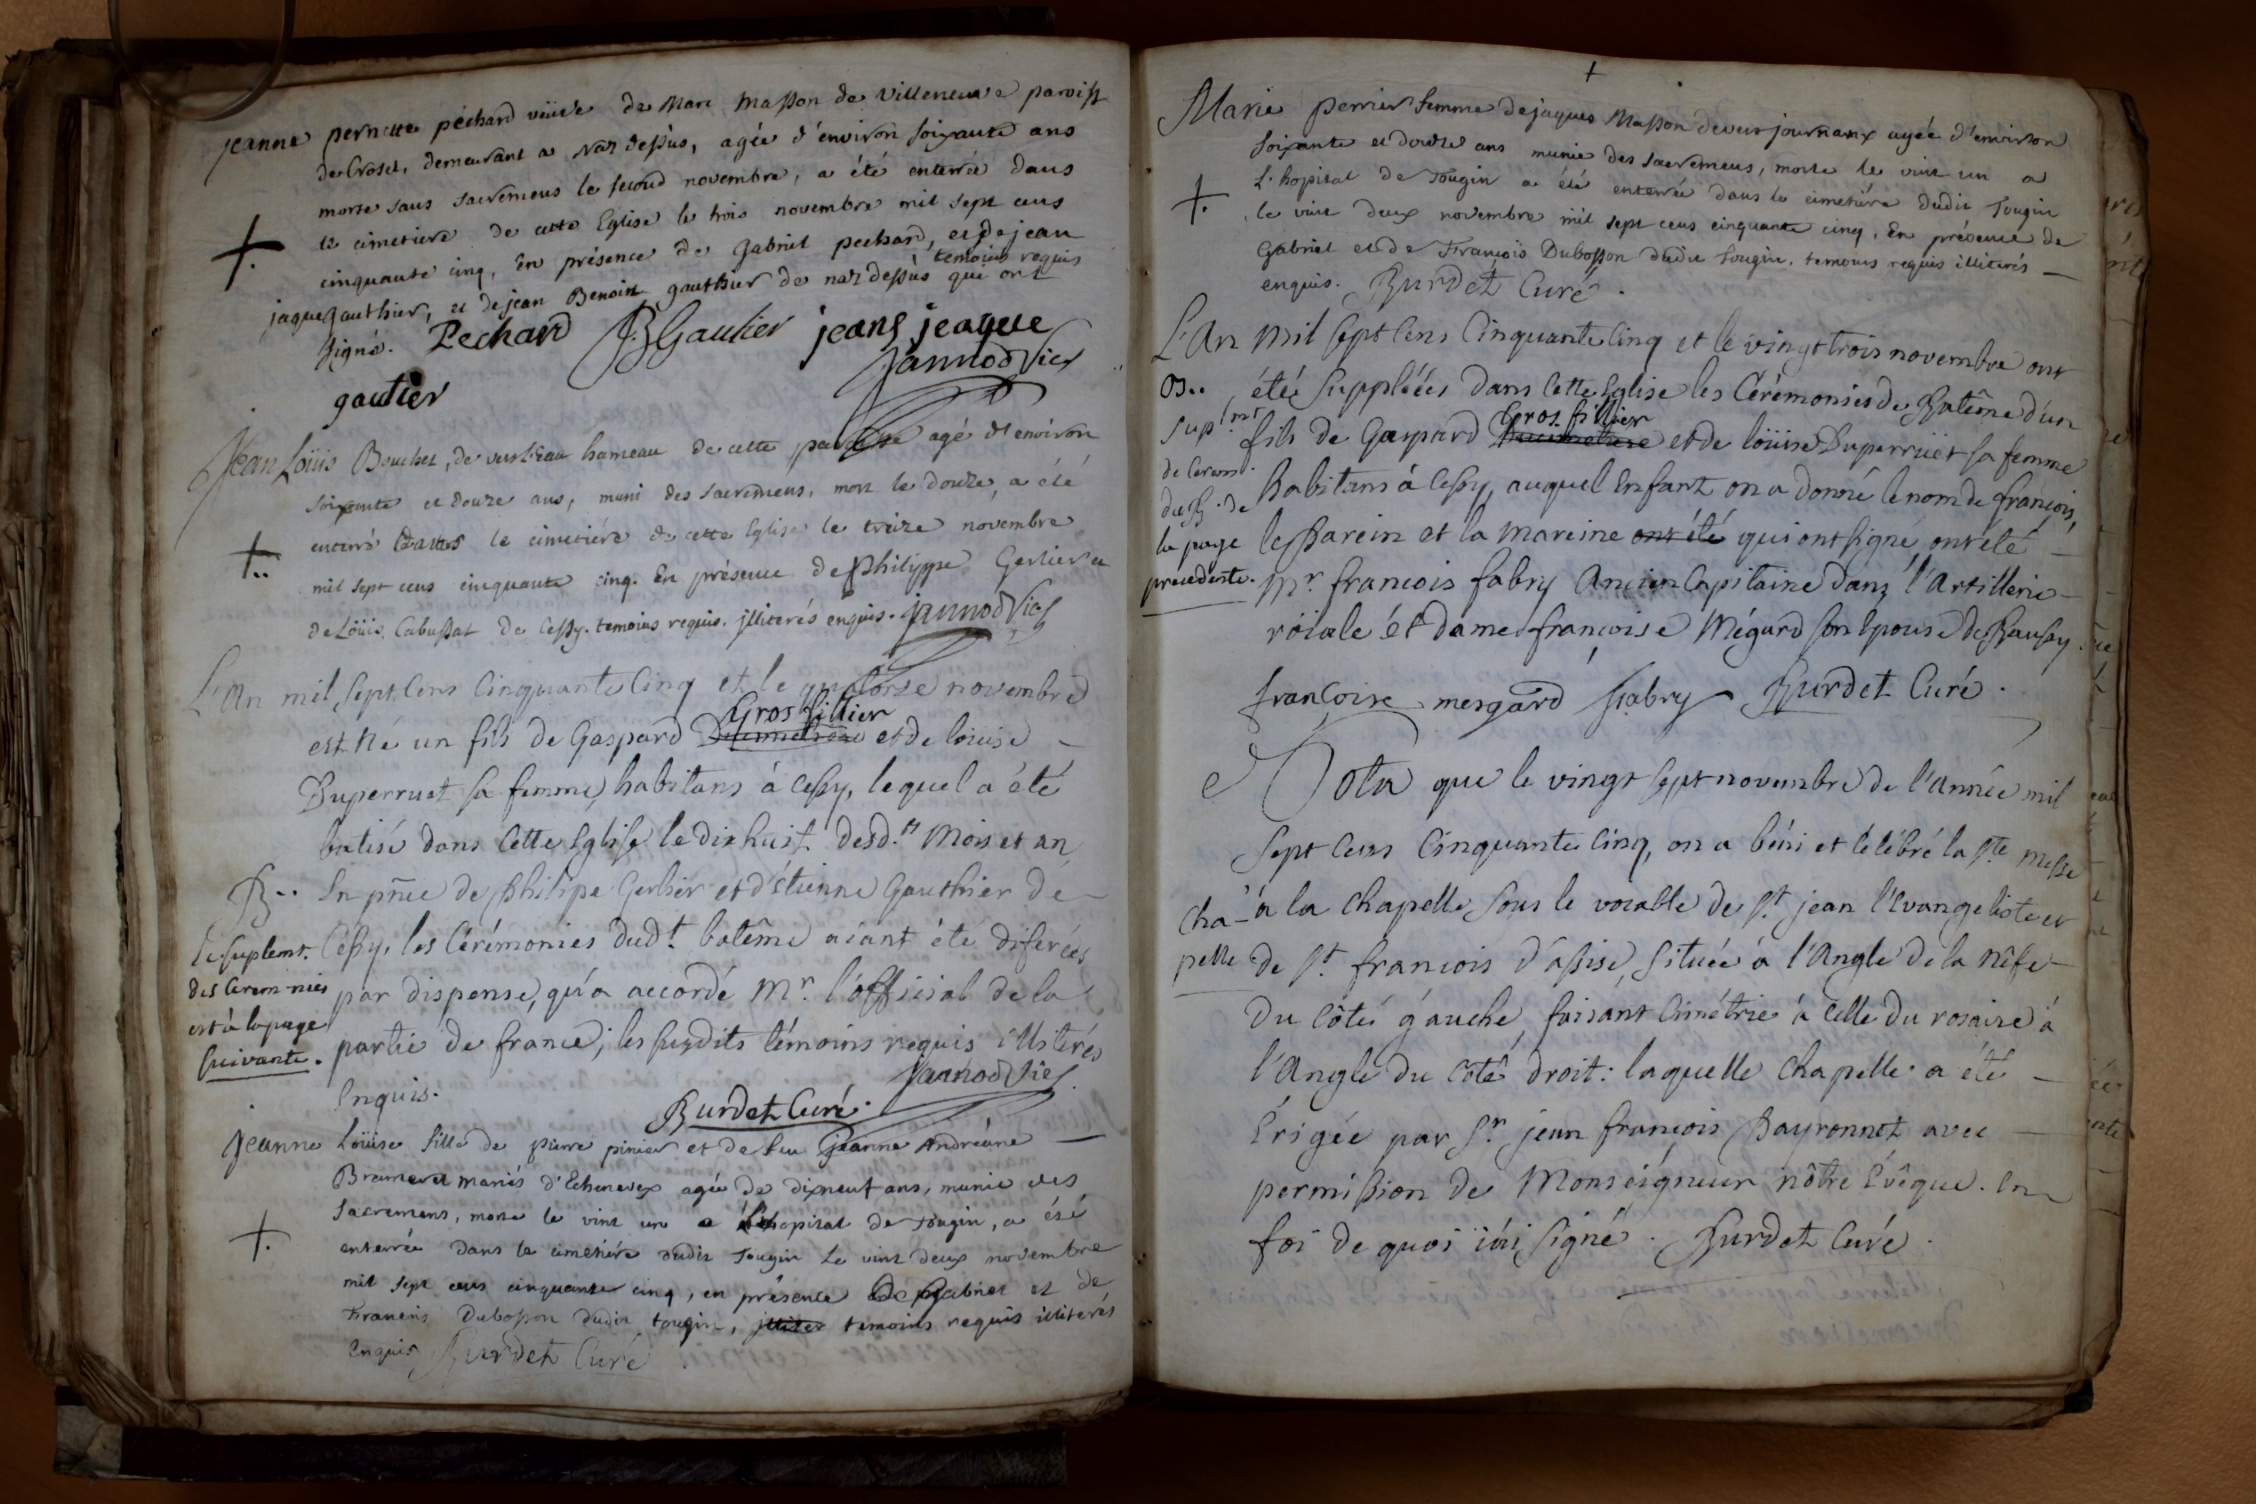 jeanne pernette péchard veüve de Marc Masson de Villeneuve paroisse
de Croset, demeurant a naz dessus, agée d'environ soixante ans
morte sans sacremens le second novembre, a été enterrée dans
le cimetiere de cette Eglise le trois novembre mil sept cens
cinquante cinq, En présence de gabriel pechard, et de jean
jaque gauthier, et de jean Benoit gauthier de naz dessus temoins requis qui ont
signé. Pechard JBGautier jean jeaque
gautier jannod Vic
Jean Loüis Bouchet, de vers l'Eau hameau de cette paroisse agé d'environ
soixante et douze ans, muni des sacremens, mort le douze, a été
enterré dans le cimetiére de cette Eglise le treize novembre
mil sept cens cinquante cinq. En présence de Philippe Gerlier et
de Loüis Cabussat de Cessy. temoins requis. jlliterés enquis. jannod Vic
L'An mil sept cens cinquante cinq et le quatorze novembre
est né un fils de Gaspard Gros fillier et de loüise
Duperruet sa femme, habitans à Cessy, lequel a été
batisé dans cette Eglise le dix huit desd.ts Mois et an
B.. En pñce de philipe Gerlier et d'étienne Gauthier de
le suplemt. Cessy, les Cérémonies dud.t batême aiant été diferées
des cerem-nies par dispense, qu'a accordé Mr. l'official de la
est à la page partie de france; les susdits témoins requis illiterés
suivante. Enquis. jannod Vic.
Burdet Curé.
jeanne Loüise fille de pierre pinier et de feu jeanne Andréane
Bramerel mariés d'Echenevex agée de dixneuf ans, munie des
sacremens, morte le vint un a l'hopital de Tougin, a été
enterrée dans le cimetiére dudit Tougin Le vint deux novembre
mil sept cens cinquante cinq, en présence de gabriel et de
Francois Dubosson dudit tougin, jlliter temoins requis illiterés
Enquis Burdet Curé
Marie perrier femme de jaques Masson de vers journanx agée d'environ
soixante et douze ans munie des sacremens, morte le vint un a
L'hopital de Tougin a été enterrée dans le cimetiére dudit Tougin
le vint deux novembre mil sept cens cinquante cinq. En présence de
Gabriel et de François Dubosson dudit Tougin. temoins requis illiterés
enquis. Burdet Curé.
L'An mil sept cens Cinquante Cinq et le vingt trois novembre ont
B.. étéé Suppléées dans Cette Eglise les Cérémonies de Batême d'un
sup.mt fils de Gaspard Gros fillier et de loüise Duperrüet sa femme
de cerem. habitans à Cessy, auquel Enfant on a donné le nom de françois,
du B. de
la page le Parein et la Mareine ont été qui ont signé, ont été
precedente. Mr. francois fabry Ancien Capitaine dans l'Artillerie
roïale ét dame françoise Mégard son Epouse de Pausay.
françoise mergard fabry Burdet Curé.
Nota que le vingt sept novembre de l'Année mil
sept cens Cinquante Cinq, on a béni et célébré la Ste Messe
cha- à la Chapelle, sous le vocable de St. jean l'Evangeliste et
pelle de St. francois d'assise, située à l'Angle de la nêfe
du Côté gauche, faisant Cimétrie à Celle du rosaire à
l'Angle du côté droit: laquelle Chapelle a été
érigée par Sr. jean françois Bayronnet avec
permission de Monseigneur nôtre Evêque. En
foi de quoi j'ai signé. Burdet Curé.